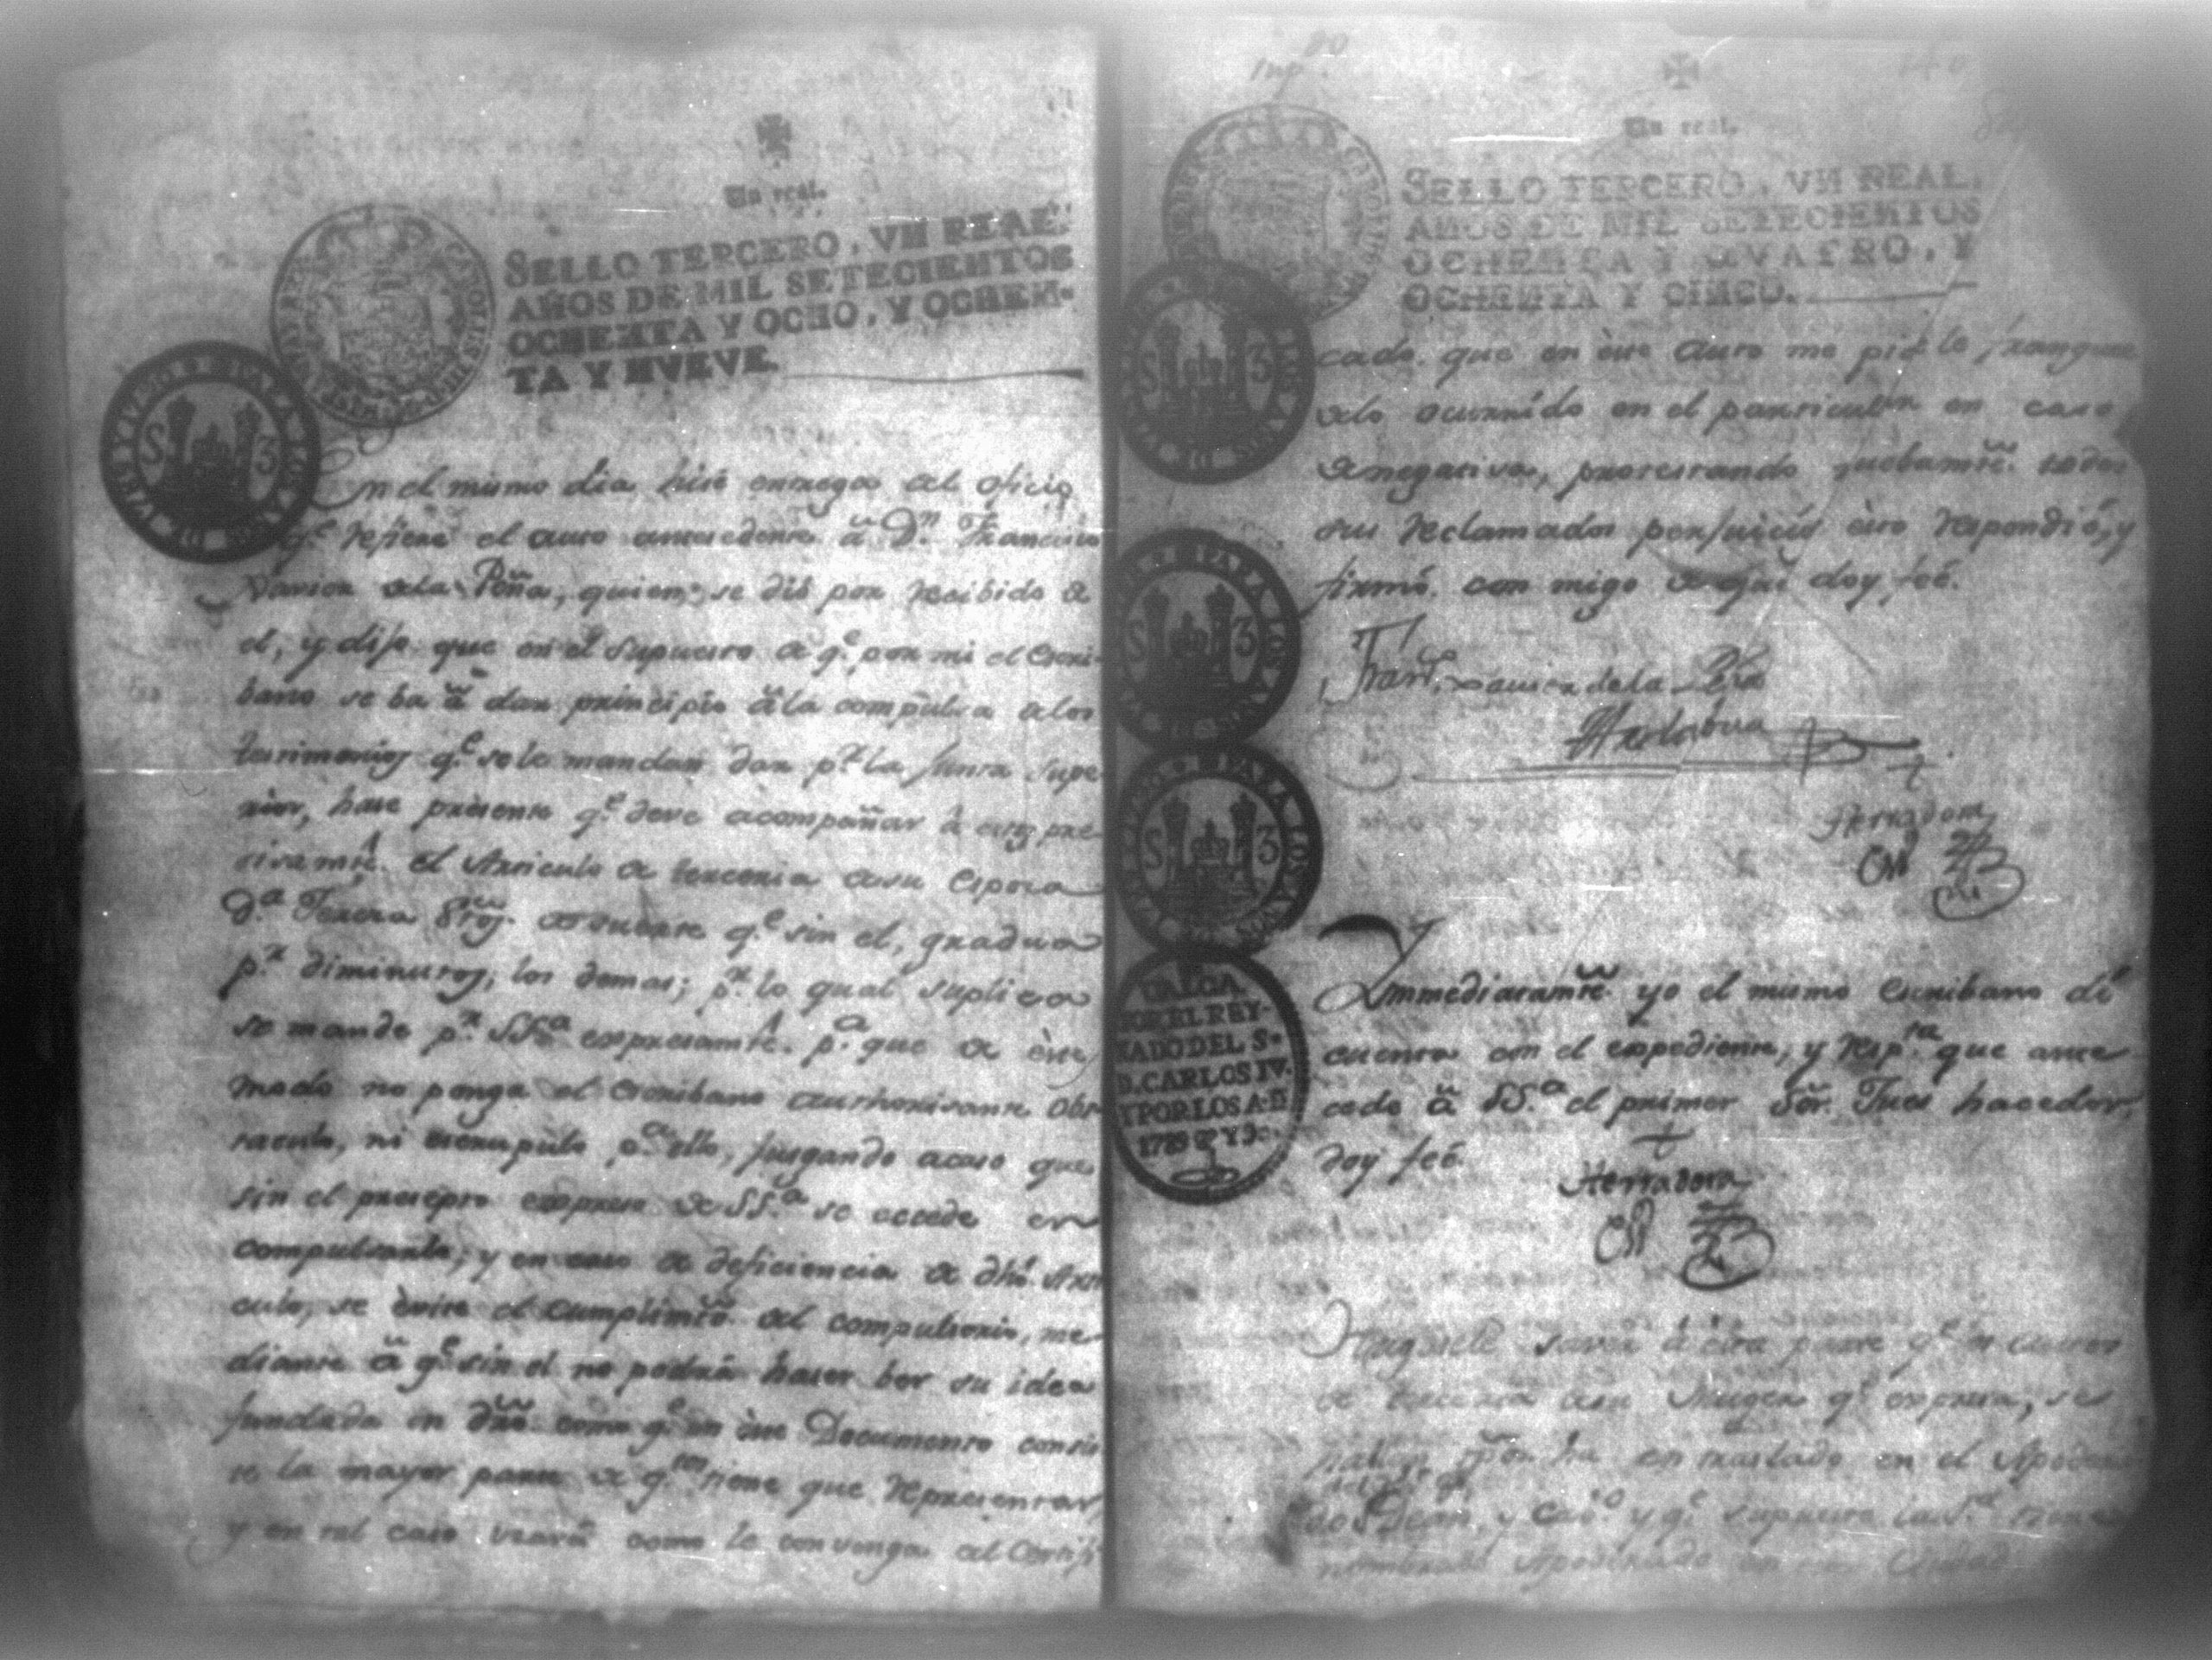 Un real.
SELLO TERCERO, VN REAL,
AÑOS DE MIL SETECIENTOS
OCHENTA Y OCHO, Y OCHEN-
TA Y NVEVE.
S 3
En el mismo dia hisé entrega del oficio
q.e refiere el auto antecedente â D.n Francisco
Xavier dela Peña, quien, se dió por recibido de
el, y dijo que en el supuesto de q.e por mi el Escri-
bano se ba â dar principio âla compulsa delos
testimonios q.e sele mandan dar p.a la Junta Supe-
rior, hase presente q.e deve acompañar â ellos pre-
sisam.te el Articulo de terceria de su Esposa
D.a Teresa de suerte q.e sin el, gradua
p.r diminutos, los demas; p.r lo qual suplica
se mande p.r SS.a expresam.te p.a que de este
modo no ponga el Escribano authorisante obs-
taculo, ni escrupulo p.a ello, jusgando acaso que
sin el presepto expreso de SS.a se ecsede en
compulsarla; y en caso de deficiencia de dho. Arti
culo, se evite el cumplim.to del compulsorio, me-
diante â q.e sin el no podrá haser ber su idea
fundada en dro. como q.e en este Documento consis
te la mayor parte de q.to tiene que representar,
y en tal caso usará como le convenga del Certifi
Un real.
SELLO TERCERO, VN REAL,
AÑOS DE MIL SETECIENTOS
OCHENTA Y QVATRO, Y
OCHENTA Y CINCO.
S 3
S 3
S 3
VALGA
POR EL REY-
NADO DEL S.
D. CARLOS IV.
Y POR LOS A. D
1789 Y 90.
cado que en este auto me pide le franquee
delo ocurrido en el particular en caso
denegativa, protestando nuebam.te todos
sus reclamados perjuicios esto respondió, y
firmó con migo de que doy feé.
Fran.co Xavier dela Peña
Herradora
Immediatam.te yo el mismo Escribano dí
cuenta con el expediente, y resp.ta que ante
cede â SS.a el primer Sor. Jues hacedor,
doy feé.
Herradora
Hagasele saver á esta parte q.e
de terceria de su Muger q.e expresa, se
en traslado en el Apodera
do Dean, y Cav.o y q.e supuesto
nombrado Apoderado en Ciudad